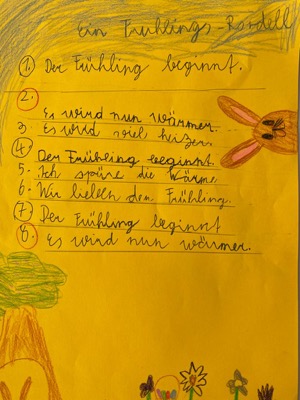 Ein Frühlings-Rondell
1. Der Frühling beginnt.
2.
Es wird nun wärmer.
3. Es wird viel heizer.
4. Der Frühling beginnt.
5. Ich spüre die Wärme.
6. Wir lieben den Frühling.
7. Der Frühling beginnt
8. Es wird nun wärmer.